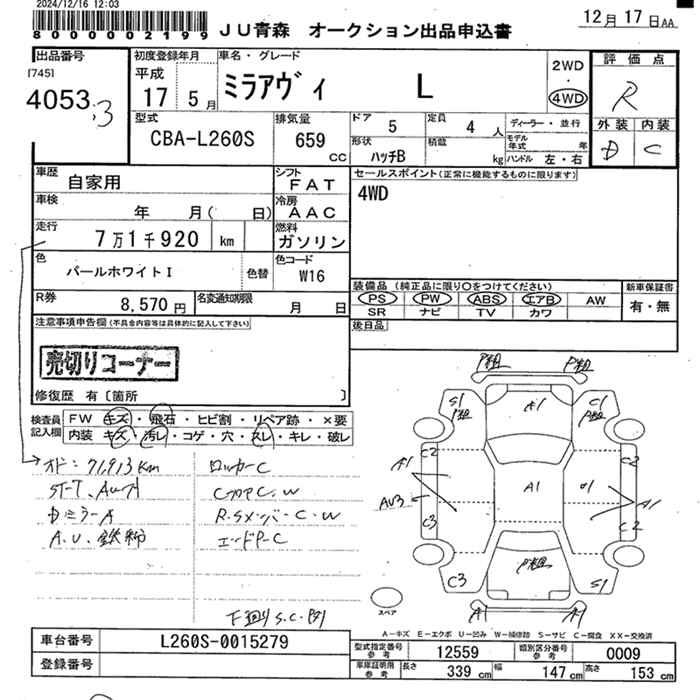 2024/12/16 12:03
8000000002199
JU青森 オークション出品申込書
12月17日AA
出品番号
[745]
4053
初度登録年月
平成
17 5月
車名・グレード
ミラアヴィ L
2WD
・
4WD
評価点
R
外装 内装
D C
型式
CBA-L260S
排気量
659
CC
ドア
5
定員
4 人
ディーラー・並行
モデル年式 年
形状
ハッチB
積載
kg
ハンドル 左・右
車歴
自家用
シフト
FAT
車検
年 月( 日)
冷房
AAC
走行
7万1千920 km
燃料
ガソリン
色
パールホワイトI
色替
色コード
W16
R券
8,570円
名変通知期限
月 日
セールスポイント(正常に機能するものに限ります)
4WD
装備品 (純正品に限り○をつけてください)
PS PW ABS エアB AW
SR ナビ TV カワ
新車保証書
有・無
後日品
注意事項申告欄(不具合内容等は具体的に記入して下さい)
売切りコーナー
修復歴 有〔箇所 〕
検査員記入欄
FW キズ・飛石・ヒビ割・リペア跡・×要
内装 キズ・汚レ・コゲ・穴・スレ・キレ・破レ
オド: 71,913km
ロッカーC
CフロアC.W
DミラーA
R.Sメンバー C.W
エンドP-C
下廻りS.C.凹
P粗 P粗
S1
P粗
A1
C1
P粗
C2 C2
A1
AU3
A1
A1
C3 C2
C3
P粗
S1
A1 A1
スペア
A-キズ E-エクボ U-凹み W-補修跡 S-サビ C-腐食 XX-交換済
車台番号
L260S-0015279
登録番号
型式指定番号 参考
12559
類別区分番号 参考
0009
車庫証明用 参考
長さ 339 cm
幅 147 cm
高さ 153 cm